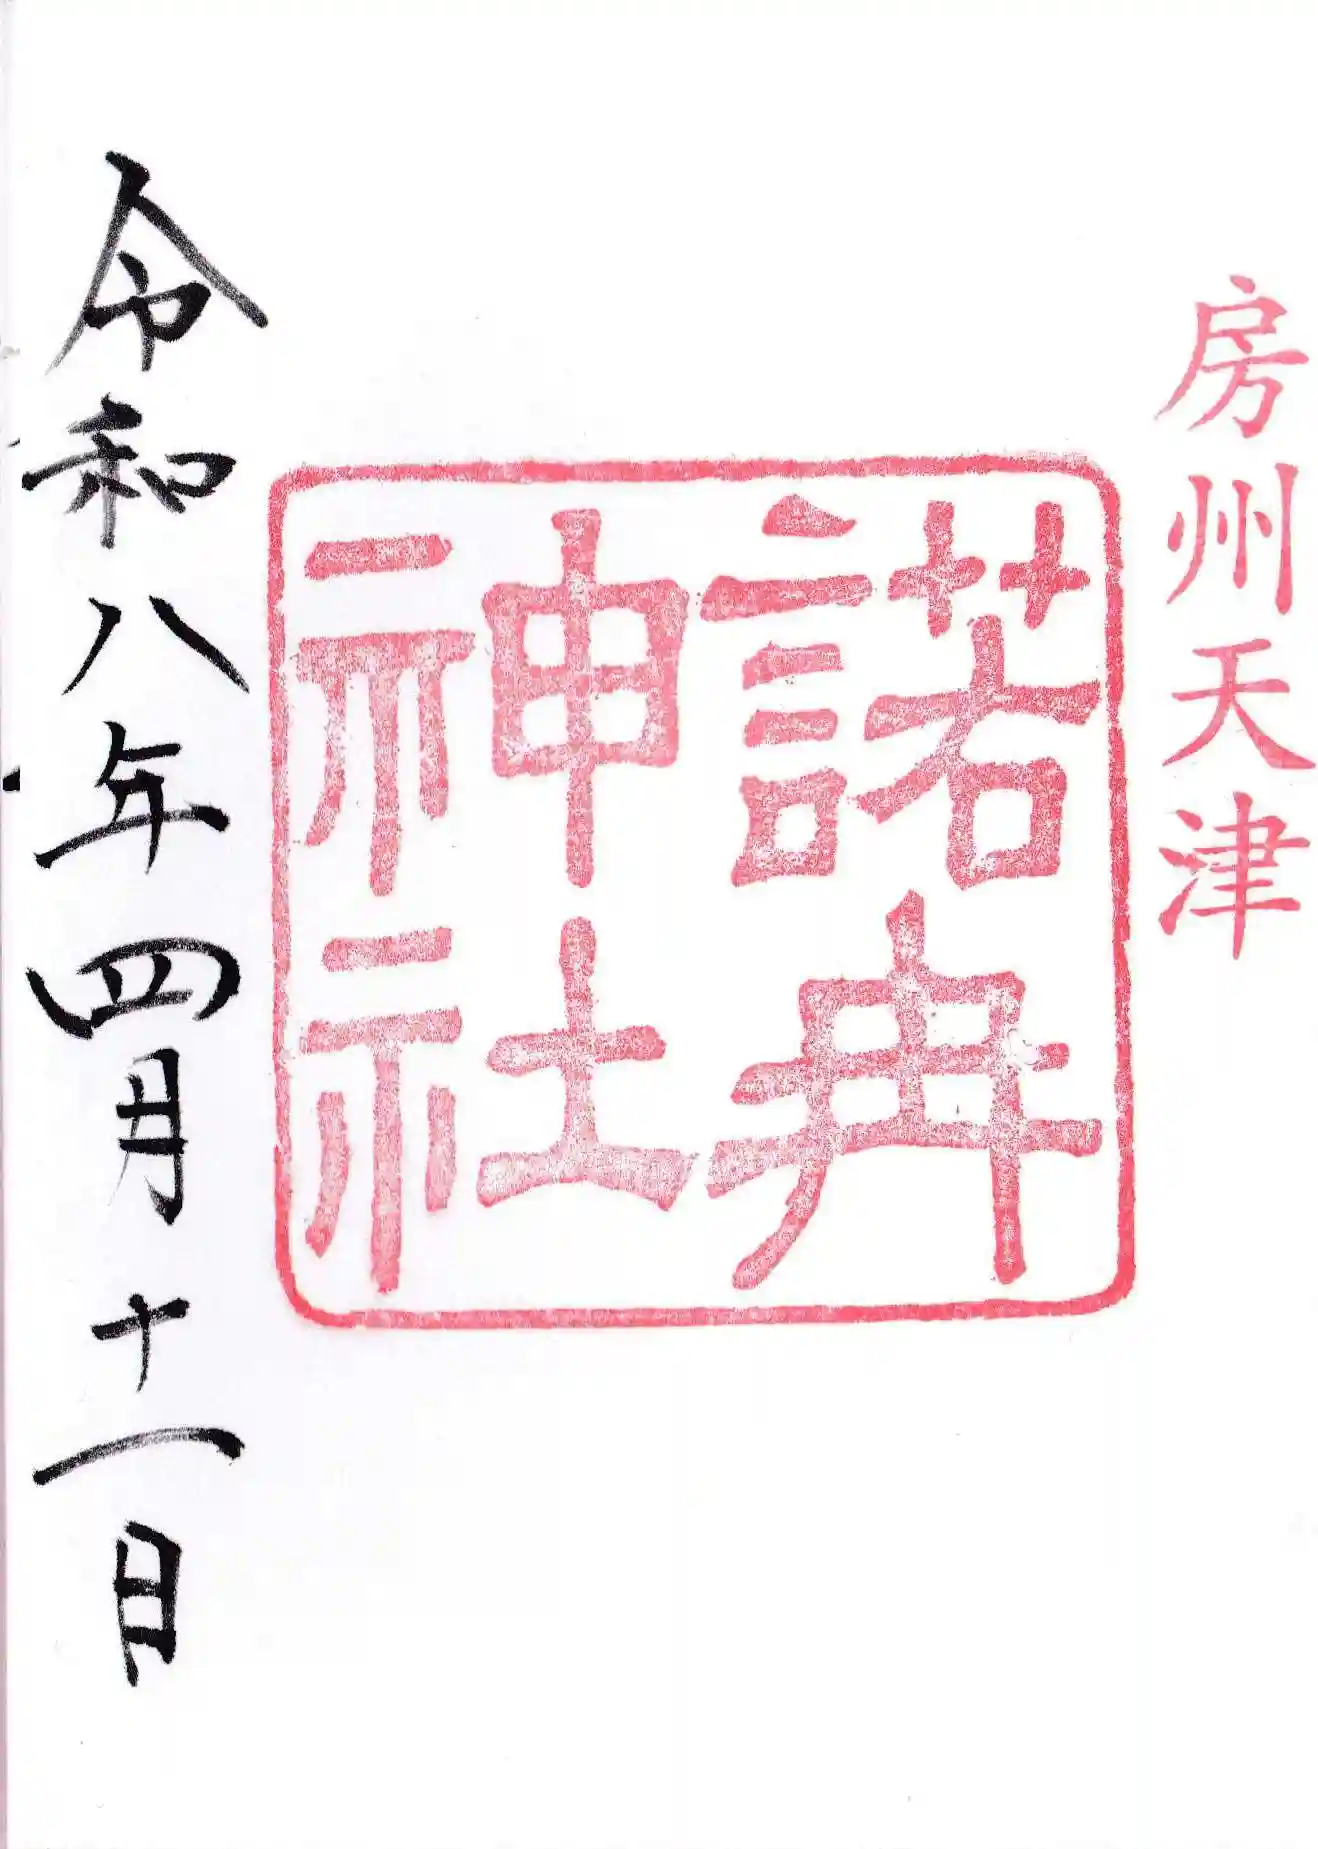 房州天津
諾冉
神社
令和八年四月十一日